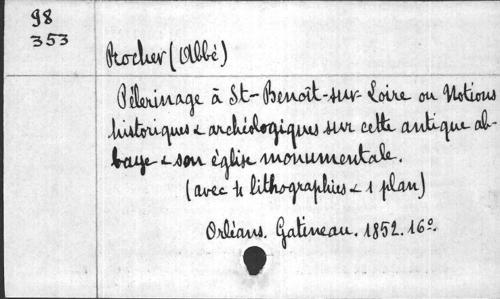 98
353
Rocher (Abbé)
Pélerinage à St-Benoît-sur-Loire ou Notions
historiques & archéologiques sur cette antique ab-
baye & son église monumentale.
(avec 4 lithographies & 1 plan)
Orléans. Gatineau. 1852. 16º.